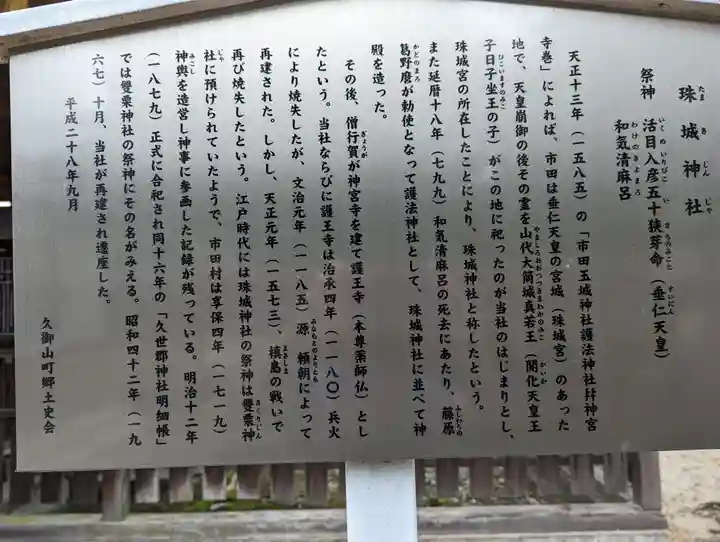 珠城神社
たまきじんじゃ
祭神 活目入彦五十狭芽命(垂仁天皇)
いくめいりびこいさちのみこと すいにん
和気清麻呂
わけのきよまろ
天正十三年(一五八五)の「市田玉城神社護法神社幷神宮
寺巻」によれば、市田は垂仁天皇の宮城(珠城宮)のあった
地で、天皇崩御の後その霊を山代大筒城真若王(開化天皇王
やましろおおつつきまわかのみこ かいか
子日子坐王の子)がこの地に祀ったのが当社のはじまりとし、
ひこいますのみこ
珠城宮の所在したことにより、珠城神社と称したという。
また延暦十八年(七九九)和気清麻呂の死去にあたり、藤原
ふじわらの
葛野麿が勅使となって護法神社として、珠城神社に並べて神
かどのまろ
殿を造った。
その後、僧行賀が神宮寺を建て護王寺(本尊薬師仏)とし
ぎょうが
たという。当社ならびに護王寺は治承四年(一一八〇)兵火
により焼失したが、文治元年(一一八五)源頼朝によって
みなもとのよりとも
再建された。しかし、天正元年(一五七三)、槙島の戦いで
まきしま
再び焼失したという。江戸時代には珠城神社の祭神は雙栗神
さくりじん
社に預けられていたようで、市田村は享保四年(一七一九)
じゃ
神輿を造営し神事に参画した記録が残っている。明治十二年
みこし
(一八七九)正式に合祀され同十六年の「久世郡神社明細帳」
では雙栗神社の祭神にその名がみえる。昭和四十二年(一九
六七)十月、当社が再建され遷座した。
平成二十八年九月
久御山町郷土史会